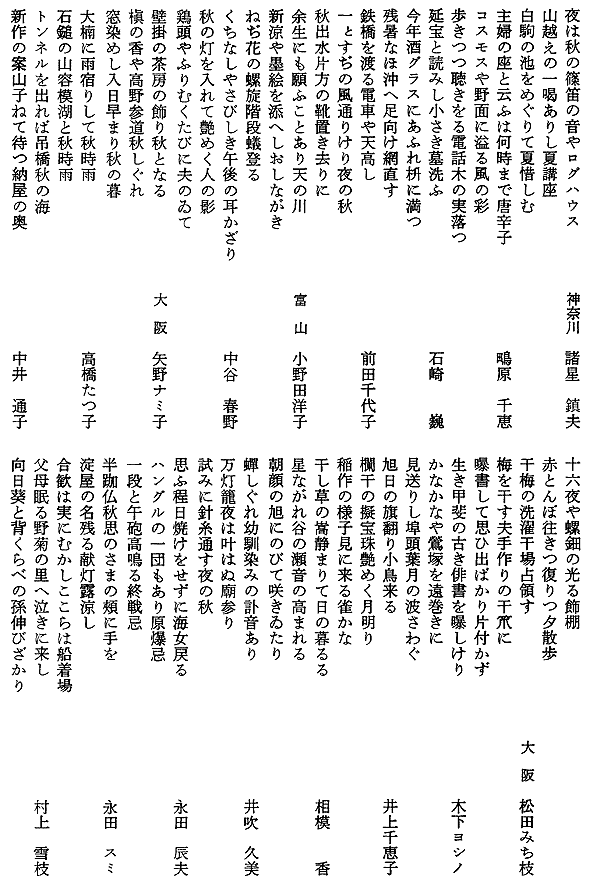 夜は秋の篠笛の音やログハウス　神奈川　諸星　鎮夫
山越えの一喝ありし夏講座
白駒の池をめぐりて夏惜しむ
主婦の座と云ふは何時まで唐辛子　鴫原　千恵
コスモスや野面に溢る風の彩
歩きつつ聴きをる電話木の実落つ
延宝と読みし小さき墓洗ふ　石崎　巍
今年酒グラスにあふれ枡に満つ
残暑なほ沖へ足向け網直す
鉄橋を渡る電車や天高し　前田千代子
一とすぢの風通りけり夜の秋
秋出水片方の靴置き去りに
余生にも願ふことあり天の川　富山　小野田洋子
新涼や墨絵を添へしおしながき
ねぢ花の螺旋階段蟻登る
くちなしやさびしき午後の耳かざり　中谷　春野
秋の灯を入れて艶めく人の影
鶏頭やふりむくたびに夫のゐて
壁掛の茶房の飾り秋となる　大阪　矢野ナミ子
槇の香や高野参道秋しぐれ
窓染めし入日早まり秋の暮
大楠に雨宿りして秋時雨　高橋たつ子
石鎚の山容模湖と秋時雨
トンネルを出れば吊橋秋の海
新作の案山子ねて待つ納屋の奥　中井　通子
十六夜や螺鈿の光る飾棚
赤とんぼ往きつ復りつ夕散歩
干梅の洗濯干場占領す　大阪　松田みち枝
梅を干す夫手作りの干笊に
曝書して思ひ出ばかり片付かず
生き甲斐の古き俳書を曝しけり　木下ヨシノ
かなかなや鷲塚を遠巻きに
見送りし埠頭葉月の波さわぐ
旭日の旗翻り小鳥来る　井上千恵子
欄干の擬宝珠艶めく月明り
稲作の様子見に来る雀かな
干し草の嵩静まりて日の暮るる　相模　香
星ながれ谷の瀬音の高まれる
朝顔の旭にのびて咲きゐたり
蟬しぐれ幼馴染みの訃音あり　井吹　久美
万灯籠夜は叶はぬ廟参り
試みに針糸通す夜の秋
思ふ程日焼けをせずに海女戻る　永田　辰夫
ハングルの一団もあり原爆忌
一段と午砲高鳴る終戦忌
半跏仏秋思のさまの頰に手を　永田　スミ
淀屋の名残る献灯露涼し
合歓は実にむかしここらは船着場
父母眠る野菊の里へ泣きに来し　村上　雪枝
向日葵と背くらべの孫伸びざかり